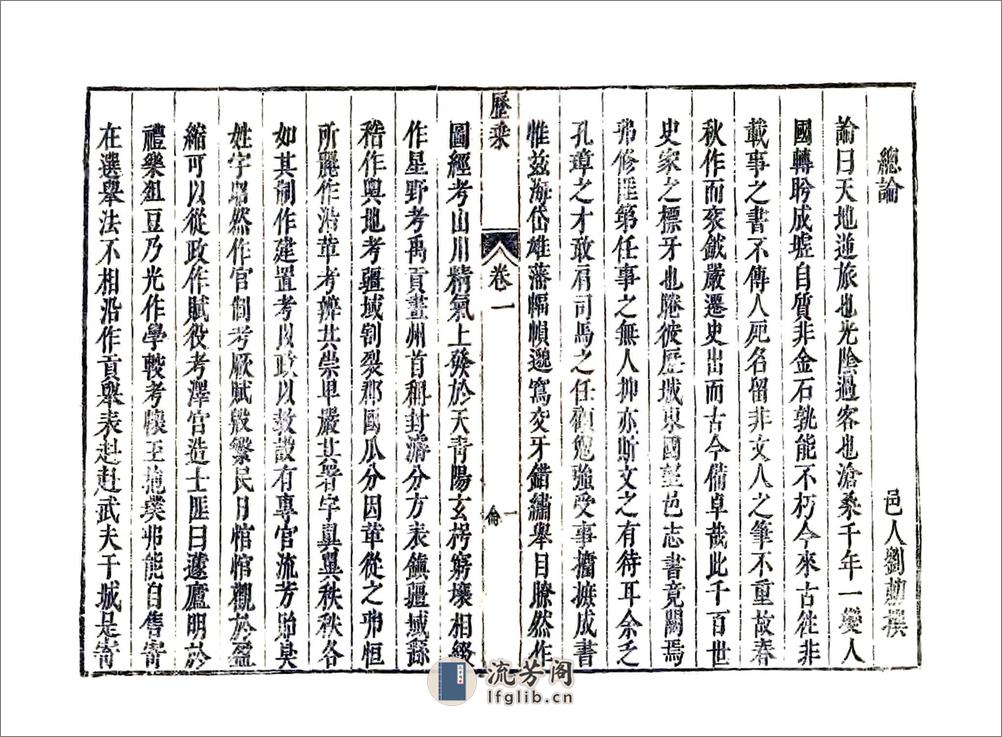 總論
邑人劉勑撰
論曰天地逆旅也光陰過客也滄桑千年一變人
國轉盻成墟自質非金石孰能不朽今來古往非
載事之書不傳人死名留非文人之筆不重故春
秋作而袞鉞嚴遷史出而古今備卓哉此千百世
史家之標牙也睠彼歷城東國望邑志書竟闕焉
弗修詎第任事之無人抑亦斯文之有待耳余乏
孔璋之才敢肩司馬之任顧勉強受事攟摭成書
惟茲海岱雄藩幅幀邈寫交牙錯繡舉目瞭然作
歷乘
卷一
論
一
圖經考山川精氣上發於天青陽玄枵窮壤相綴
作星野考禹貢畫州首稱封濬分方表鎮疆域繇
稽作輿地考疆域割裂郡國瓜分因革從之弗恒
所麗作沿革考辨其崇卑嚴其署字翼翼秩秩各
如其制作建置考以政以教設有專官流芳貽臭
姓字昭然作官制考厥賦殷繁民日悺悺觀於盈
縮可以從政作賦役考澤宮造士匪曰蘧廬明於
禮樂俎豆乃光作學較考懷玉抱璞弗能自售寄
在選舉法不相沿作貢舉表赳赳武夫干城是寄
流芳阁
lfglib.cn